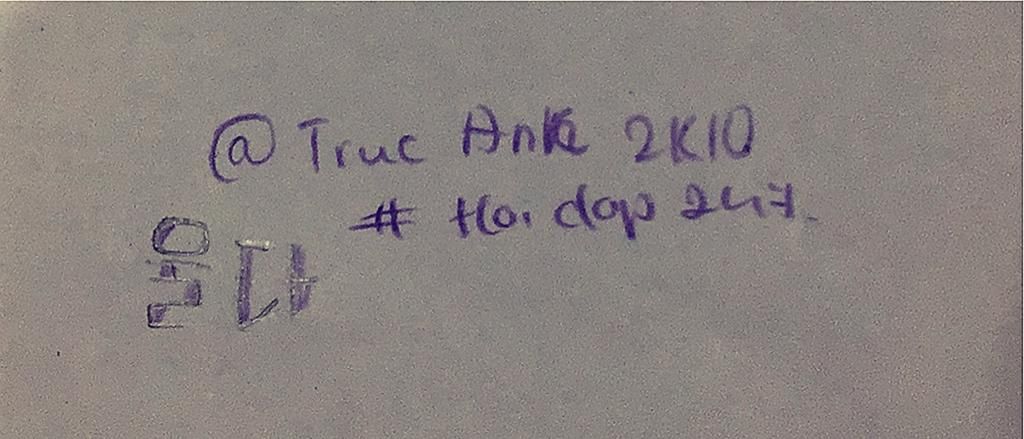 @ Truc Anh 2K10
# Hoi dap 247.